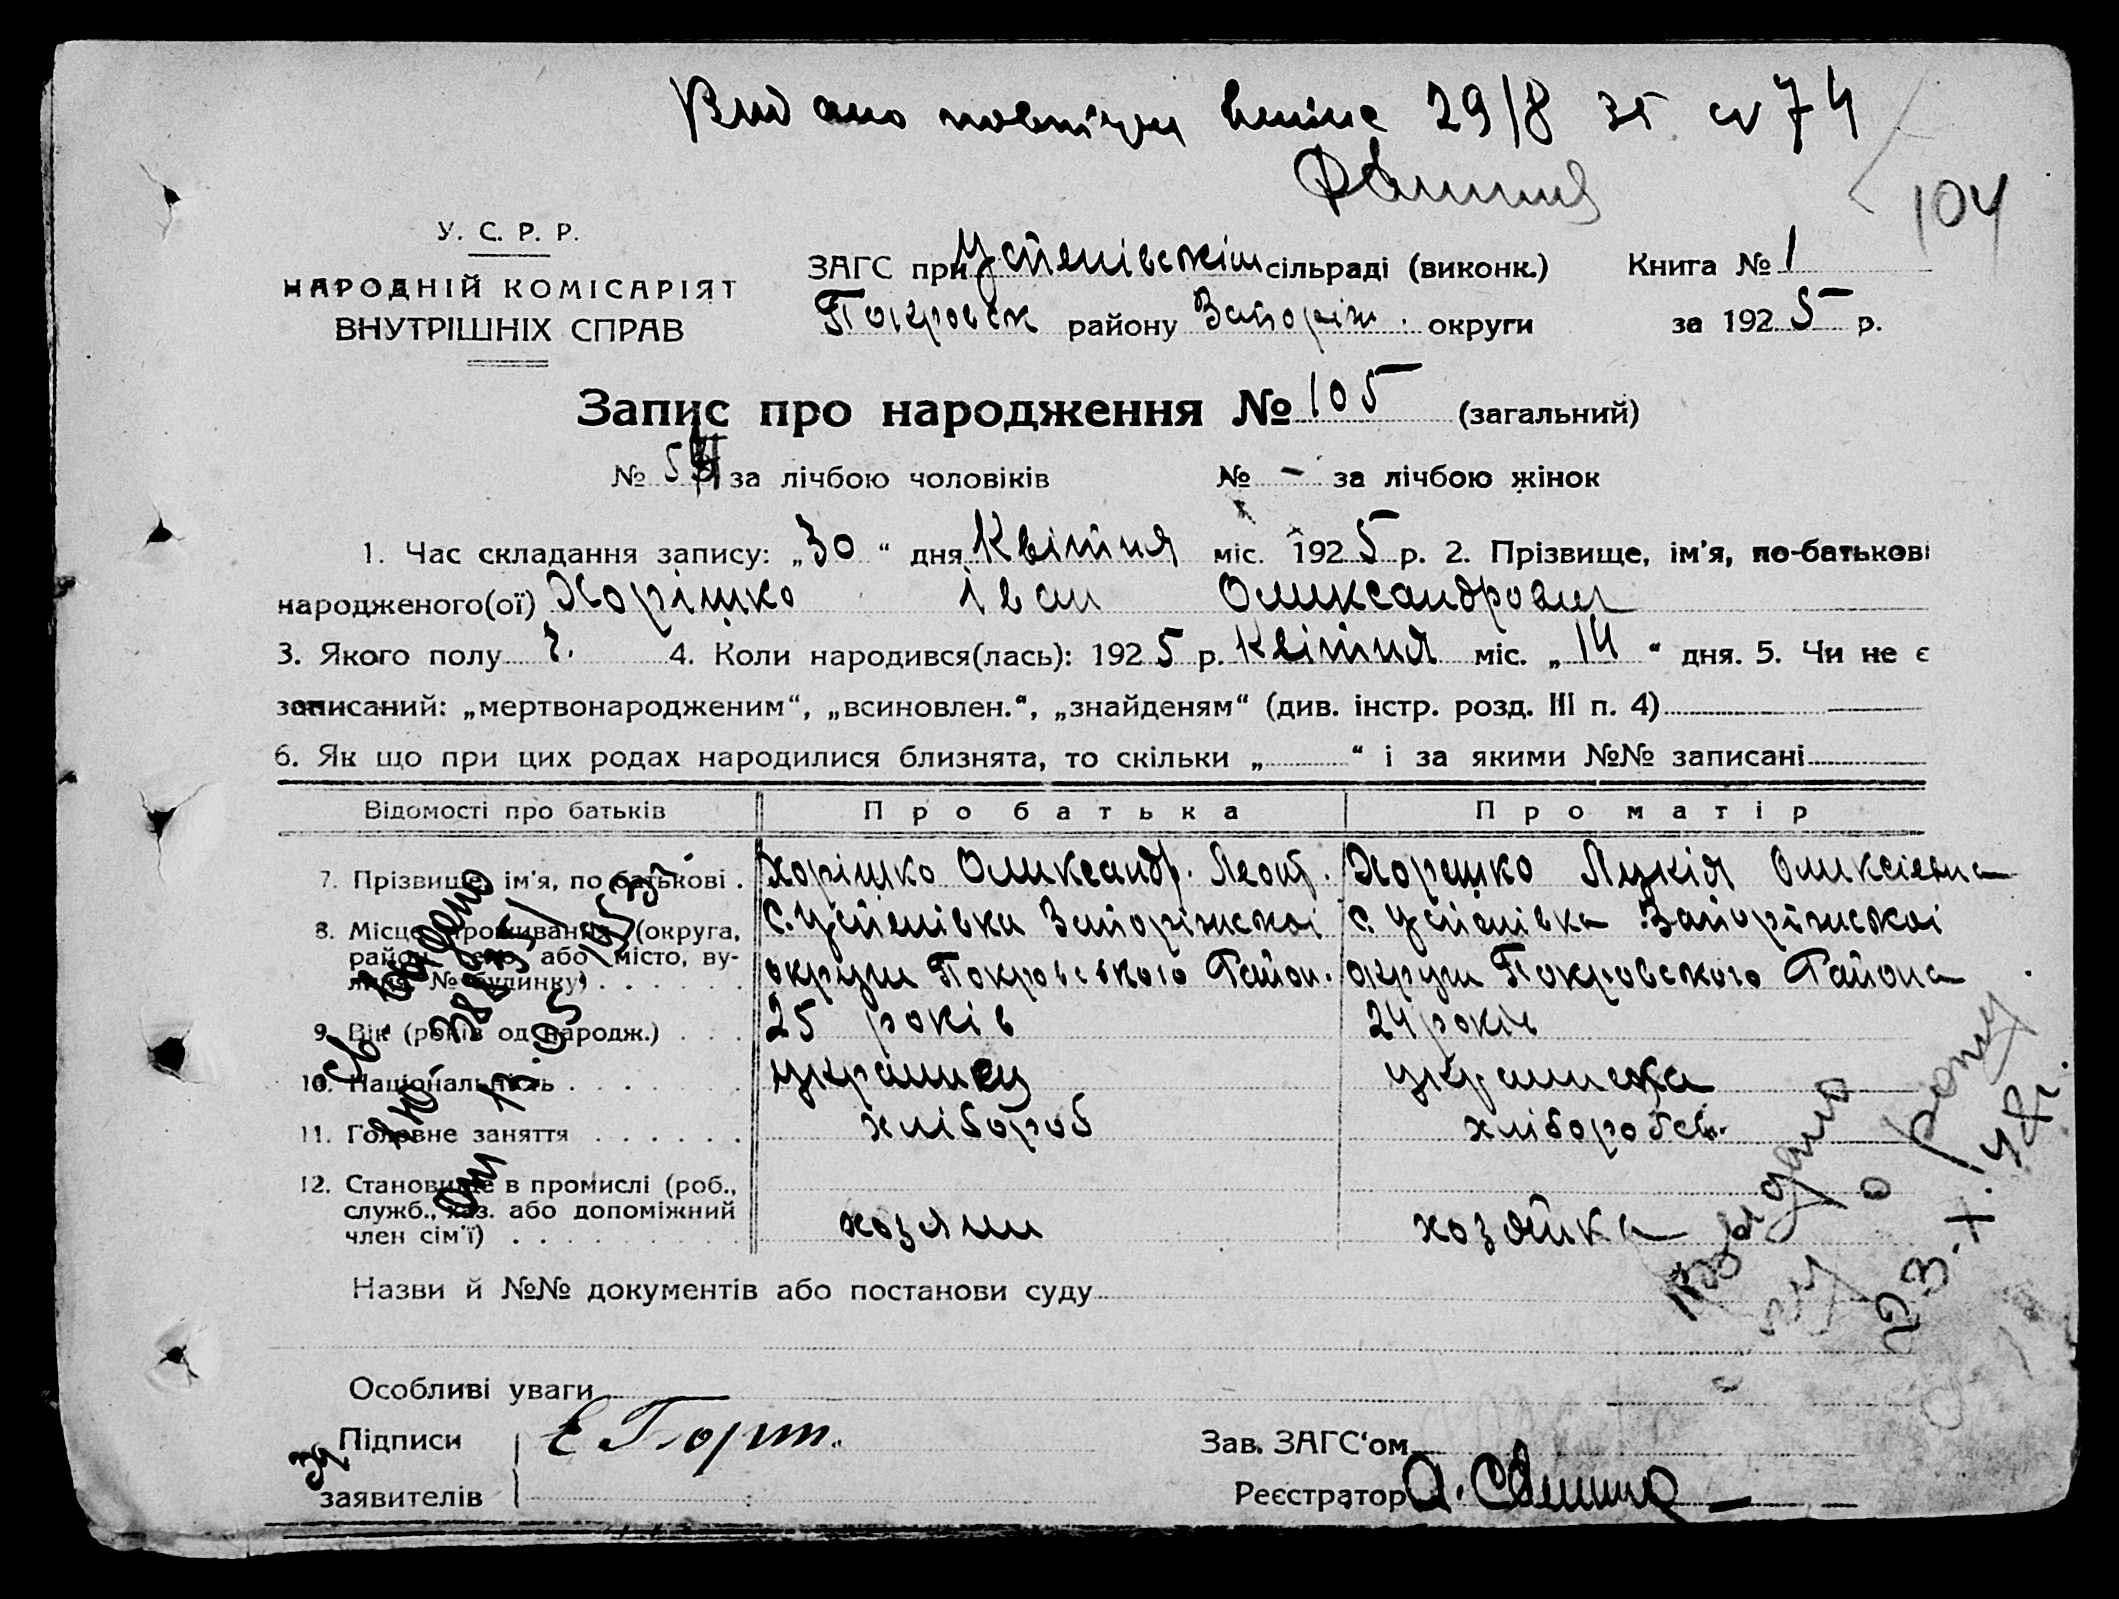 Видано 29/8 35 № 74
104
У. С. Р. Р.
НАРОДНІЙ КОМІСАРІЯТ
ВНУТРІШНІХ СПРАВ
ЗАГС при Успенівскім сільраді (виконк.) Книга № 1
Покровск району Запоріж. округи за 1925 р.
Запис про народження № 105 (загальний)
№ за лічбою чоловіків № - за лічбою жінок
1. Час складання запису: „30“ дня Квітня міс. 1925 р. 2. Прізвище, ім'я, по-батькові
народженого(ої) Хорішко Іван Олександрович
3. Якого полу ч. 4. Коли народився(лась): 1925 р. Квітня міс. „14“ дня. 5. Чи не є
записаний: „мертвонародженим“, „всиновлен.“, „знайденям“ (див. інстр. розд. III п. 4)
6. Як що при цих родах народилися близнята, то скільки „ “ і за якими №№ записані
Відомості про батьків Про батька Про матір
7. Прізвище, ім'я, по батькові . Хорішко Олександр. Леонт. Хорешко Оликсіевна
8. Місце проживання (округа, район, село або місто, вулиця № будинку) . . . . . .
С. Успенівка Запоріжскоі округи Покровського Район. с. Успенівка Запоріжскоі округи Покровского Района
9. Вік (років од народж.) . . . 25 років 24 років
10. Національність . . . . . . украинец украинка
11. Головне заняття . . . . . . хлібороб хлібороб
12. Становище в промислі (роб., служб., хаз. або допоміжний член сім'ї) . . . . . . . . . хозяин хозяйка
Назви й №№ документів або постанови суду
Особливі уваги
Підписи
заявителів
Зав. ЗАГС'ом
Реєстратор
Св. видано
Выдано
23-X.